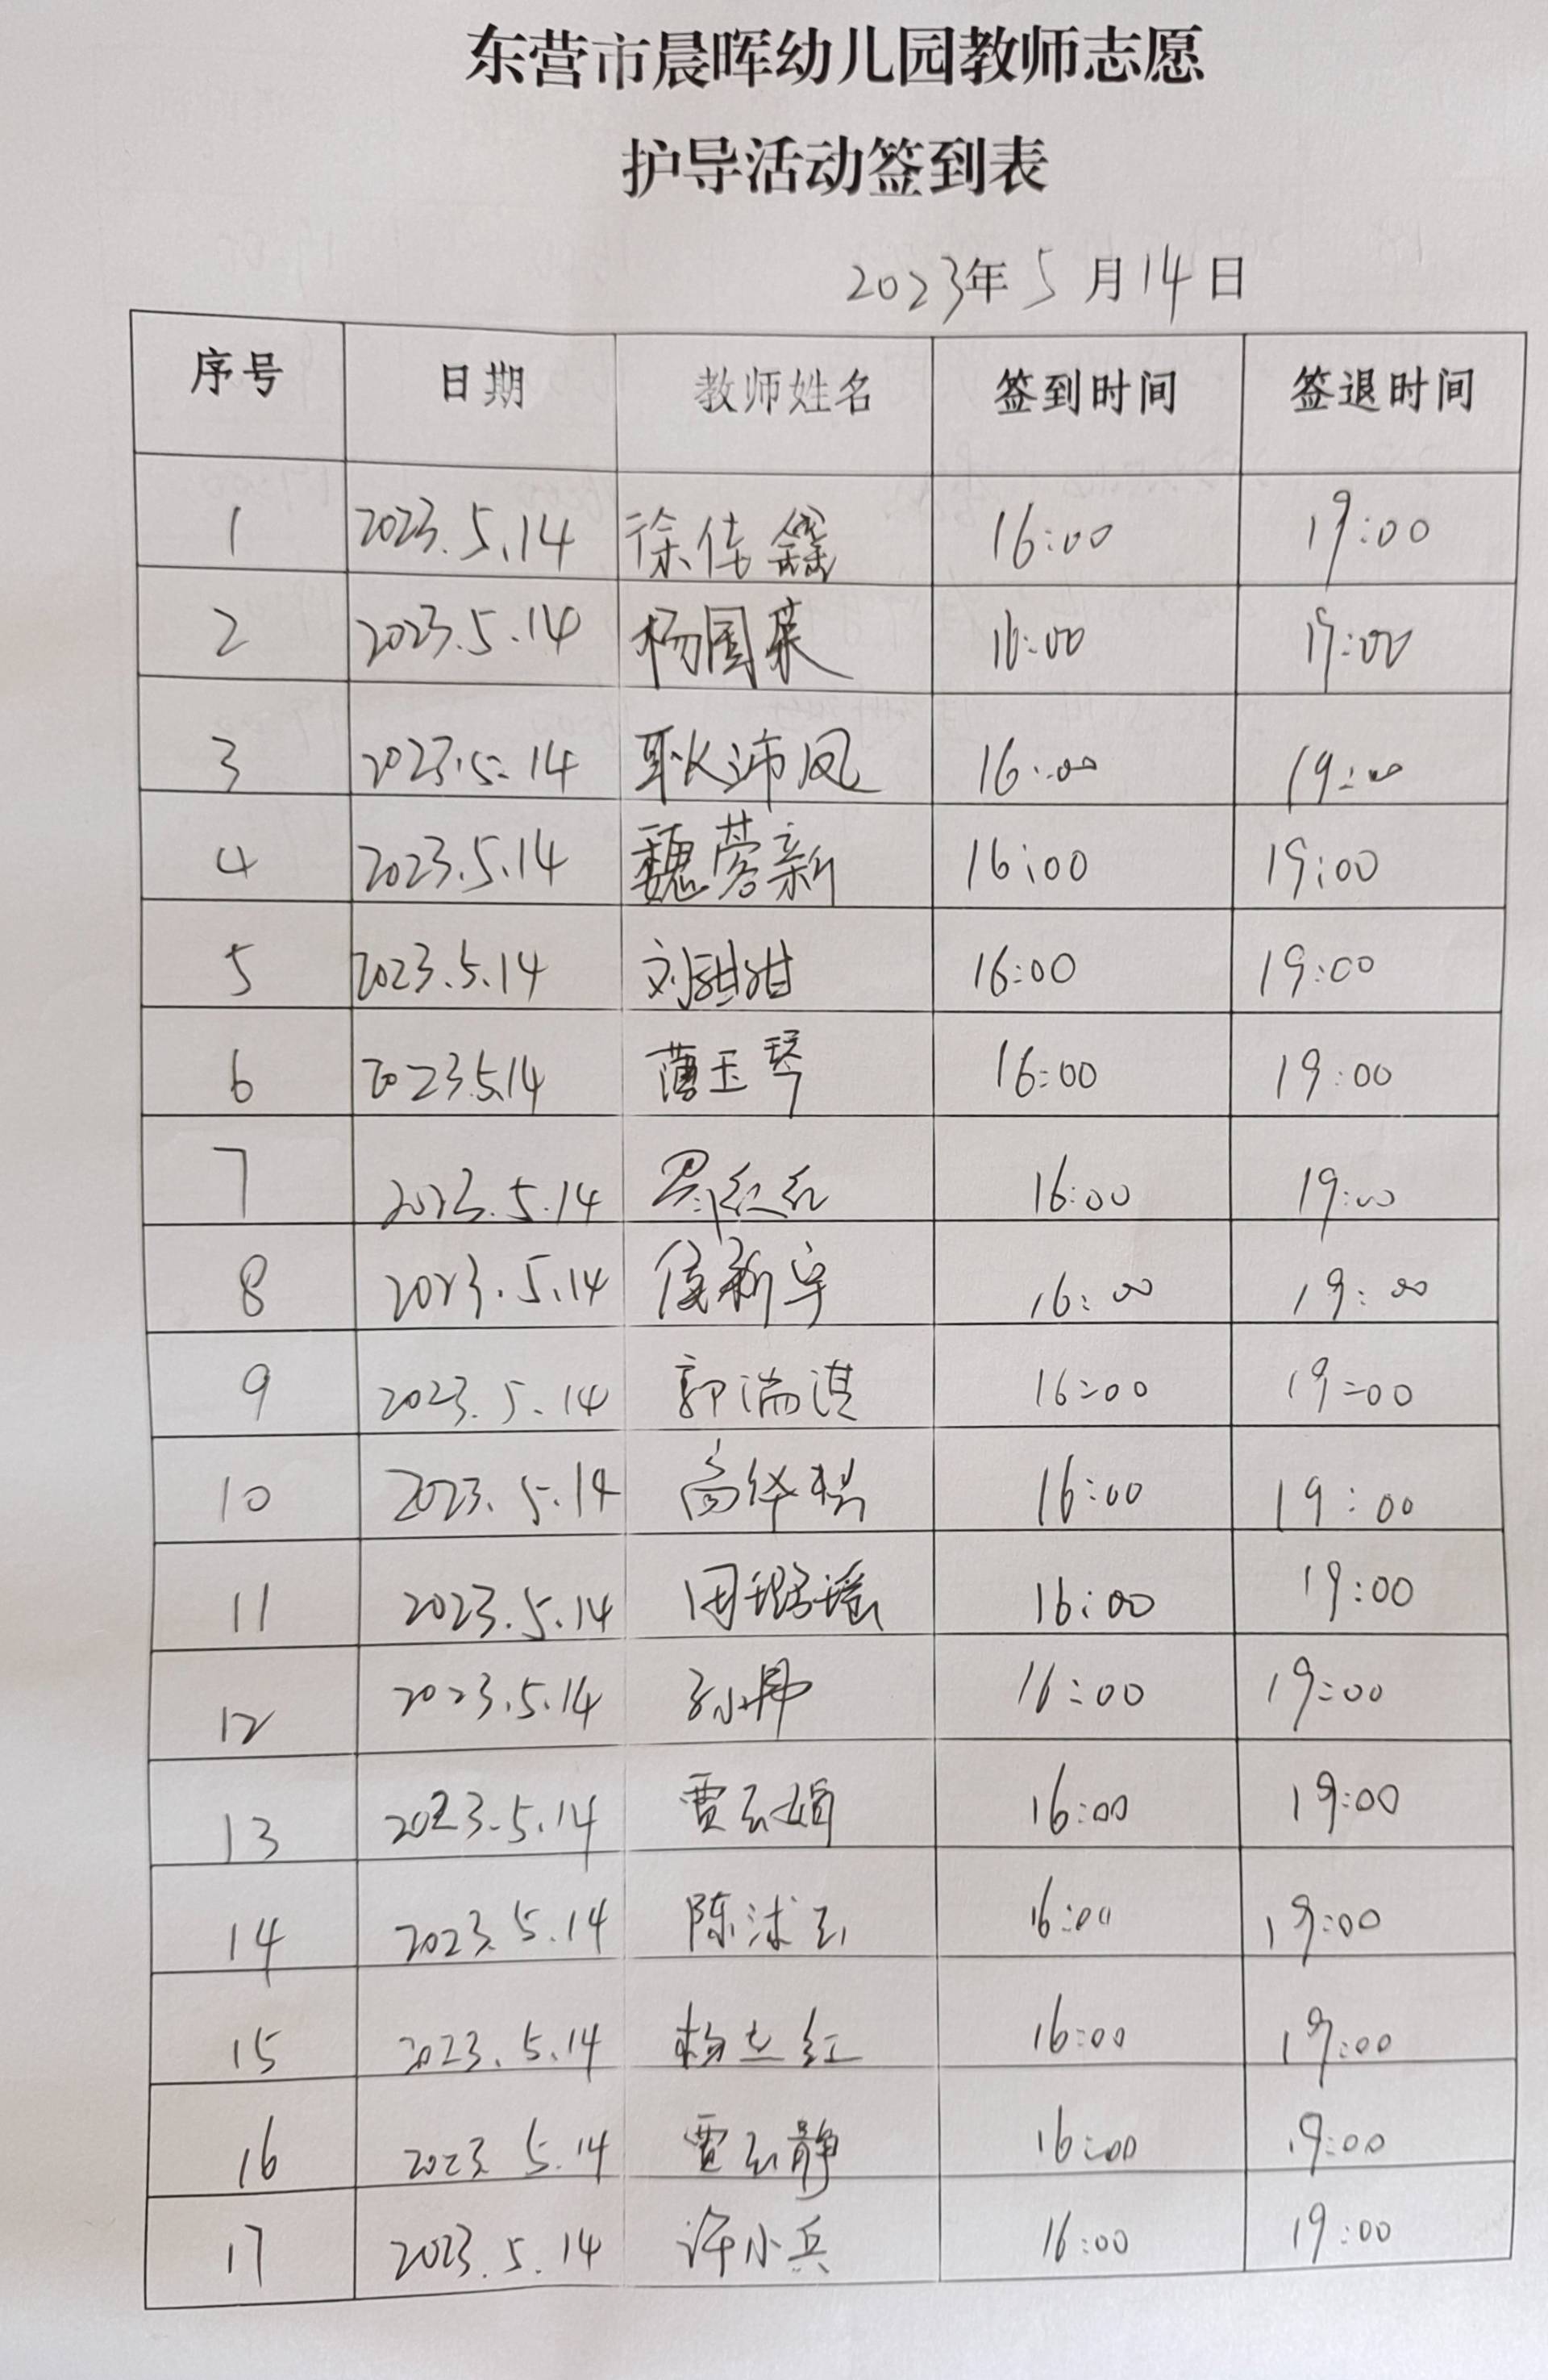 东营市晨晖幼儿园教师志愿
护导活动签到表
2023年5月14日
序号 日期 教师姓名 签到时间 签退时间
1 2023.5.14 徐佳鑫 16:00 19:00
2 2023.5.14 杨国英 16:00 19:00
3 2023.5.14 耿沛凤 16:00 19:00
4 2023.5.14 魏蓉新 16:00 19:00
5 2023.5.14 刘甜甜 16:00 19:00
6 2023.5.14 薄玉琴 16:00 19:00
7 2023.5.14 红红 16:00 19:00
8 2023.5.14 侯新宇 16:00 19:00
9 2023.5.14 郭瑞淇 16:00 19:00
10 2023.5.14 高华 16:00 19:00
11 2023.5.14 田璐瑶 16:00 19:00
12 2023.5.14 孙 16:00 19:00
13 2023.5.14 贾云娟 16:00 19:00
14 2023.5.14 陈沭云 16:00 19:00
15 2023.5.14 杨立红 16:00 19:00
16 2023.5.14 贾云静 16:00 19:00
17 2023.5.14 许小兵 16:00 19:00